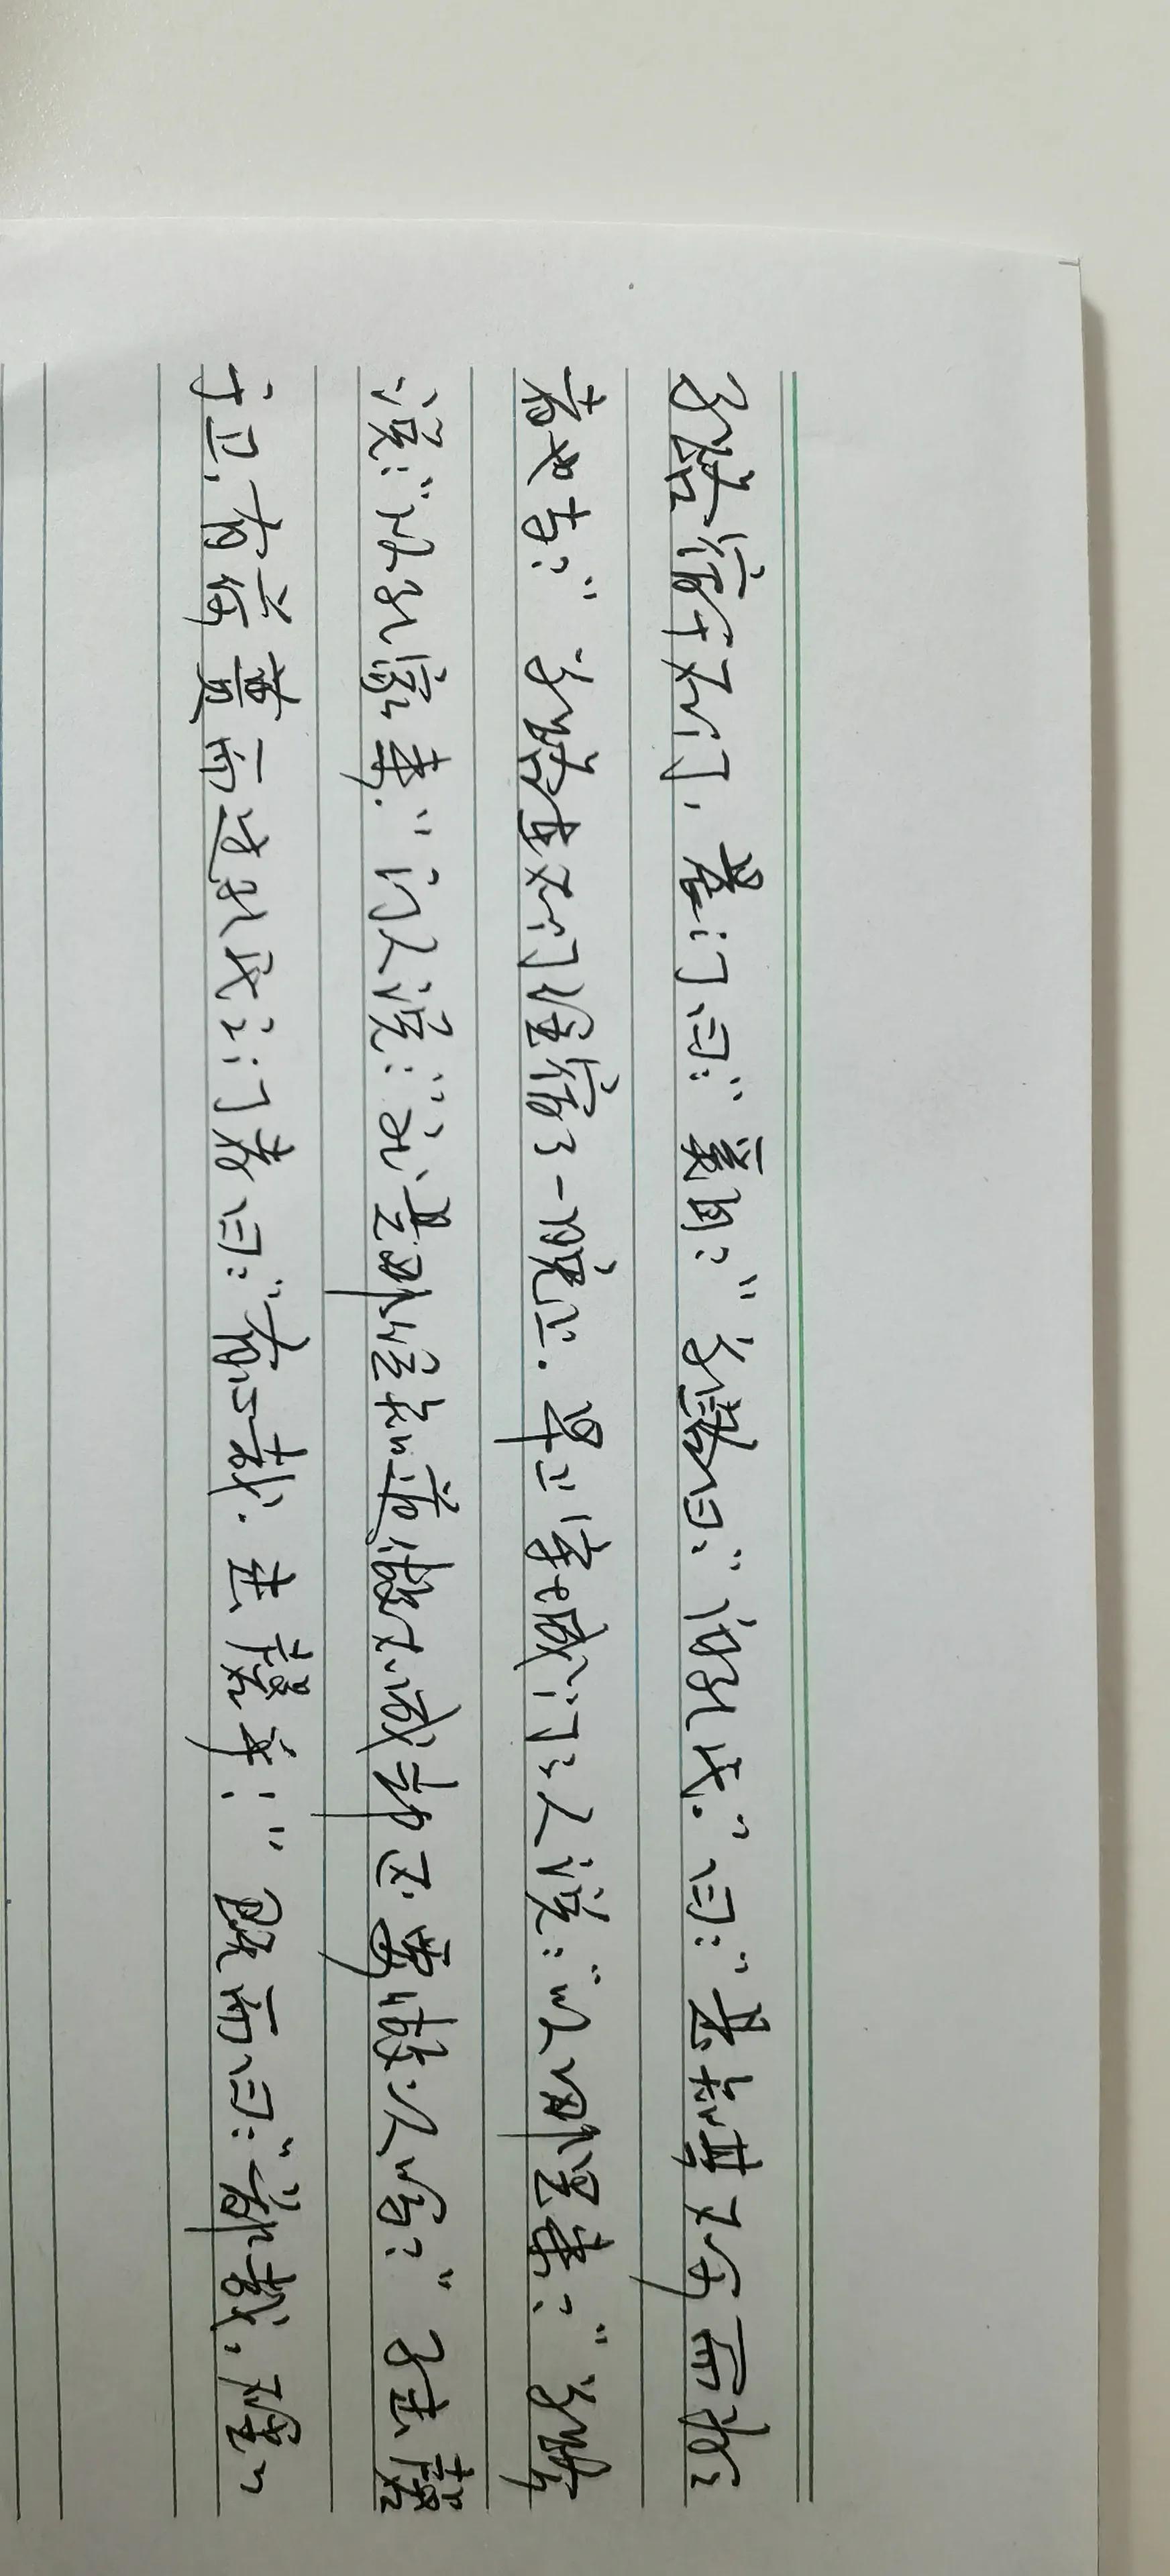 子路宿于石门，晨门曰：“奚自？”子路曰：“自孔氏。”曰：“是知其不可而为之
者也与？”子路在石门住宿了一晚上。早上守城门的人说：“从哪里来？”子路
说：“从孔家来。”门人说：“就是那位知道做不成却还要做的人吗？”子击磬
于卫，有荷蒉而过孔氏之门者曰：“有心哉，击磬乎！”既而曰：“鄙哉，硁硁